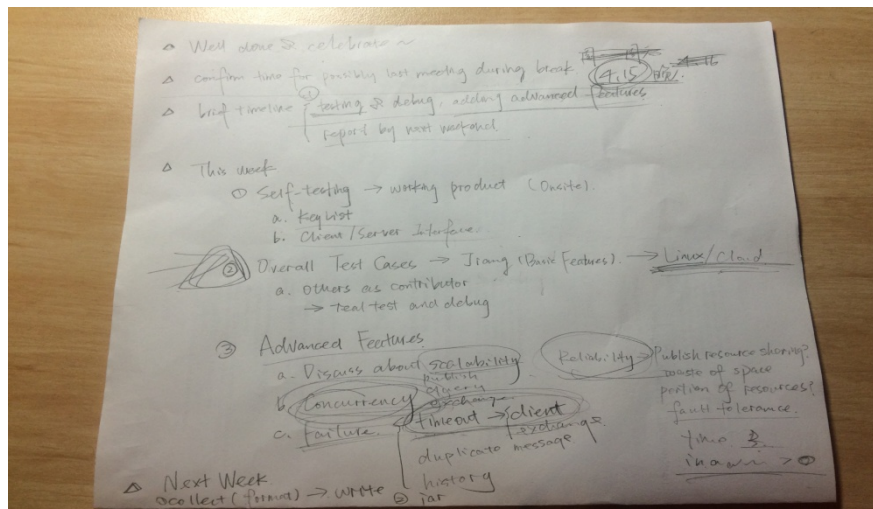 △ Well done & celebrate ~
△ confirm time for possibly last meeting during break 4.15
△ brief timeline ① testing & debug, adding advanced features
report by next weekend.
△ This week
① Self-testing → working product (Onsite).
a. Key List
b. Client/Server Interface
② Overall Test Cases → Jiang (Basic Features). → Linux/Cloud
a. Others as contributor
→ real test and debug
③ Advanced Features
a. Discuss about scalability
publish
query
exchange
b. Concurrency
c. Failure.
timeout → client
exchange
duplicate message
history
Reliability → Publish resource sharing?
waste of space
portion of resources?
fault tolerance.
△ Next Week
① collect (format) → write ② jar